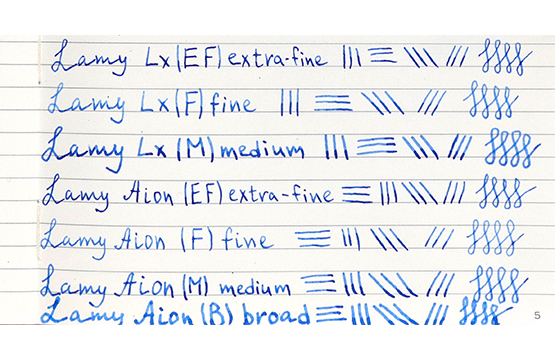 Lamy Lx (EF) extra-fine
Lamy Lx (F) fine
Lamy Lx (M) medium
Lamy Aion (EF) extra-fine
Lamy Aion (F) fine
Lamy Aion (M) medium
Lamy Aion (B) broad
5